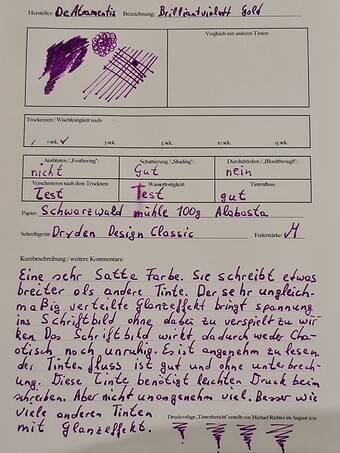 Hersteller: De Atramentis Bezeichnung: Brilliantviolett Gold
Vergleich mit anderen Tinten:
Trockenzeit / Wischfestigkeit nach:
1 sek. ✓ 3 sek. 5 sek. 10 sek. 15 sek.
Ausbluten / „Feathering“: Schattierung / „Shading“: Durchdrücken / „Bleedthrough“:
nicht Gut nein
Verschmieren nach dem Trocknen: Wasserfestigkeit: Tintenfluss:
Test Test gut
Papier: Schwarzwald mühle 100g Alabasta
Schreibgerät: Dryden Design Classic Federstärke: M
Kurzbeschreibung / weitere Kommentare:
Eine sehr Satte Farbe. Sie schreibt etwas
breiter als andere Tinte. Der sehr ungleich-
maßig verteilte Glanzeffekt bringt spannung
ins Schriftbild ohne dabei zu verspielt zu wir-
ken. Das Schriftbild wirkt dadurch weder Cha-
otisch noch unruhig. Es ist angenehm zu lesen.
der Tintenfluss ist gut und ohne unterbrech-
ung. Diese Tinte benötigt leichten Druck beim
schreiben. Aber nicht unangenehm viel. Besser wie
viele anderen Tinten
mit Glanzeffekt.
Druckvorlage „Tintenbericht“ erstellt von Michael Richter im August 2011